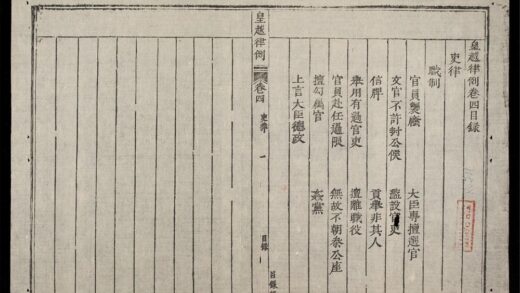 皇越律例卷四目錄
吏律
職制
官員襲廕
大臣專擅選官
文官不許封公侯
濫設官吏
信牌
貢舉非其人
舉用有過官吏
擅離職役
官員赴任過限
無故不朝參公座
擅勾屬官
姦黨
上言大臣德政
皇越律例
卷四
吏律
一
目錄
一